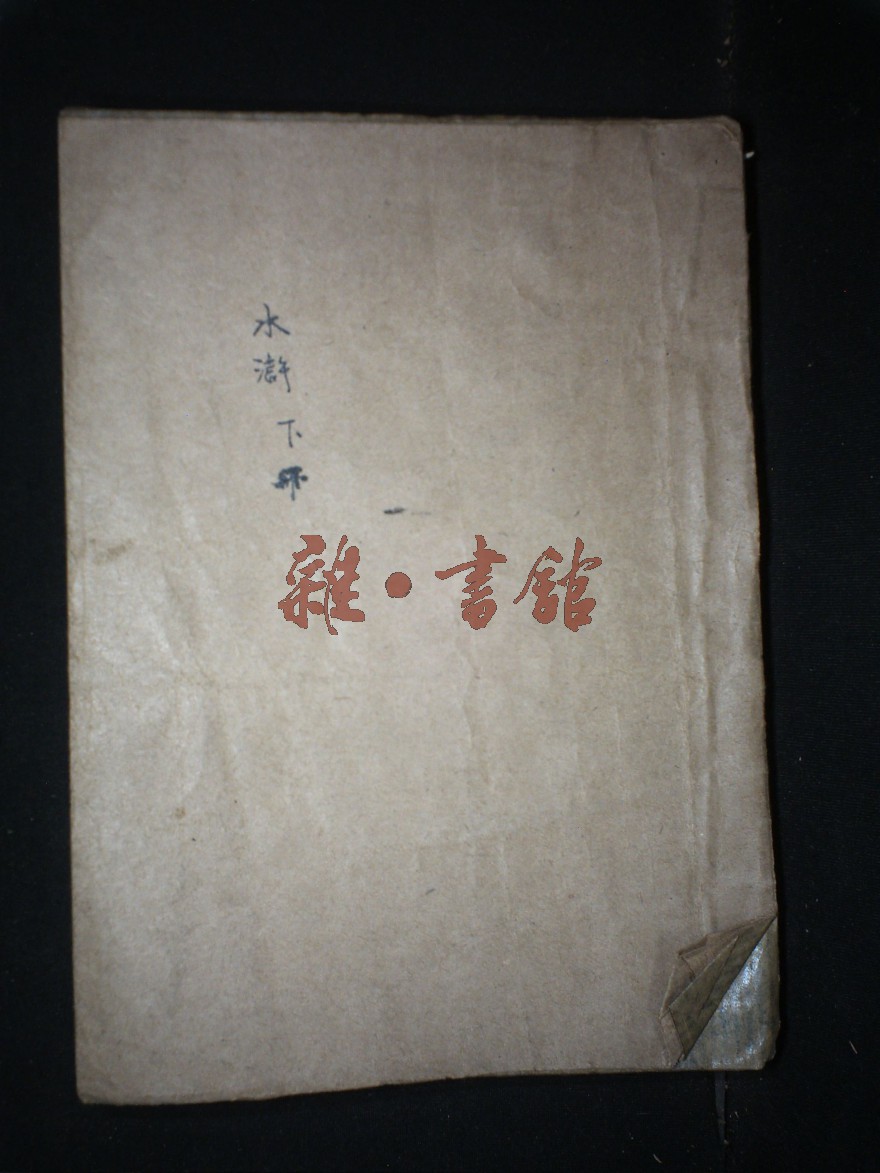 水滸
下冊
雜·書館